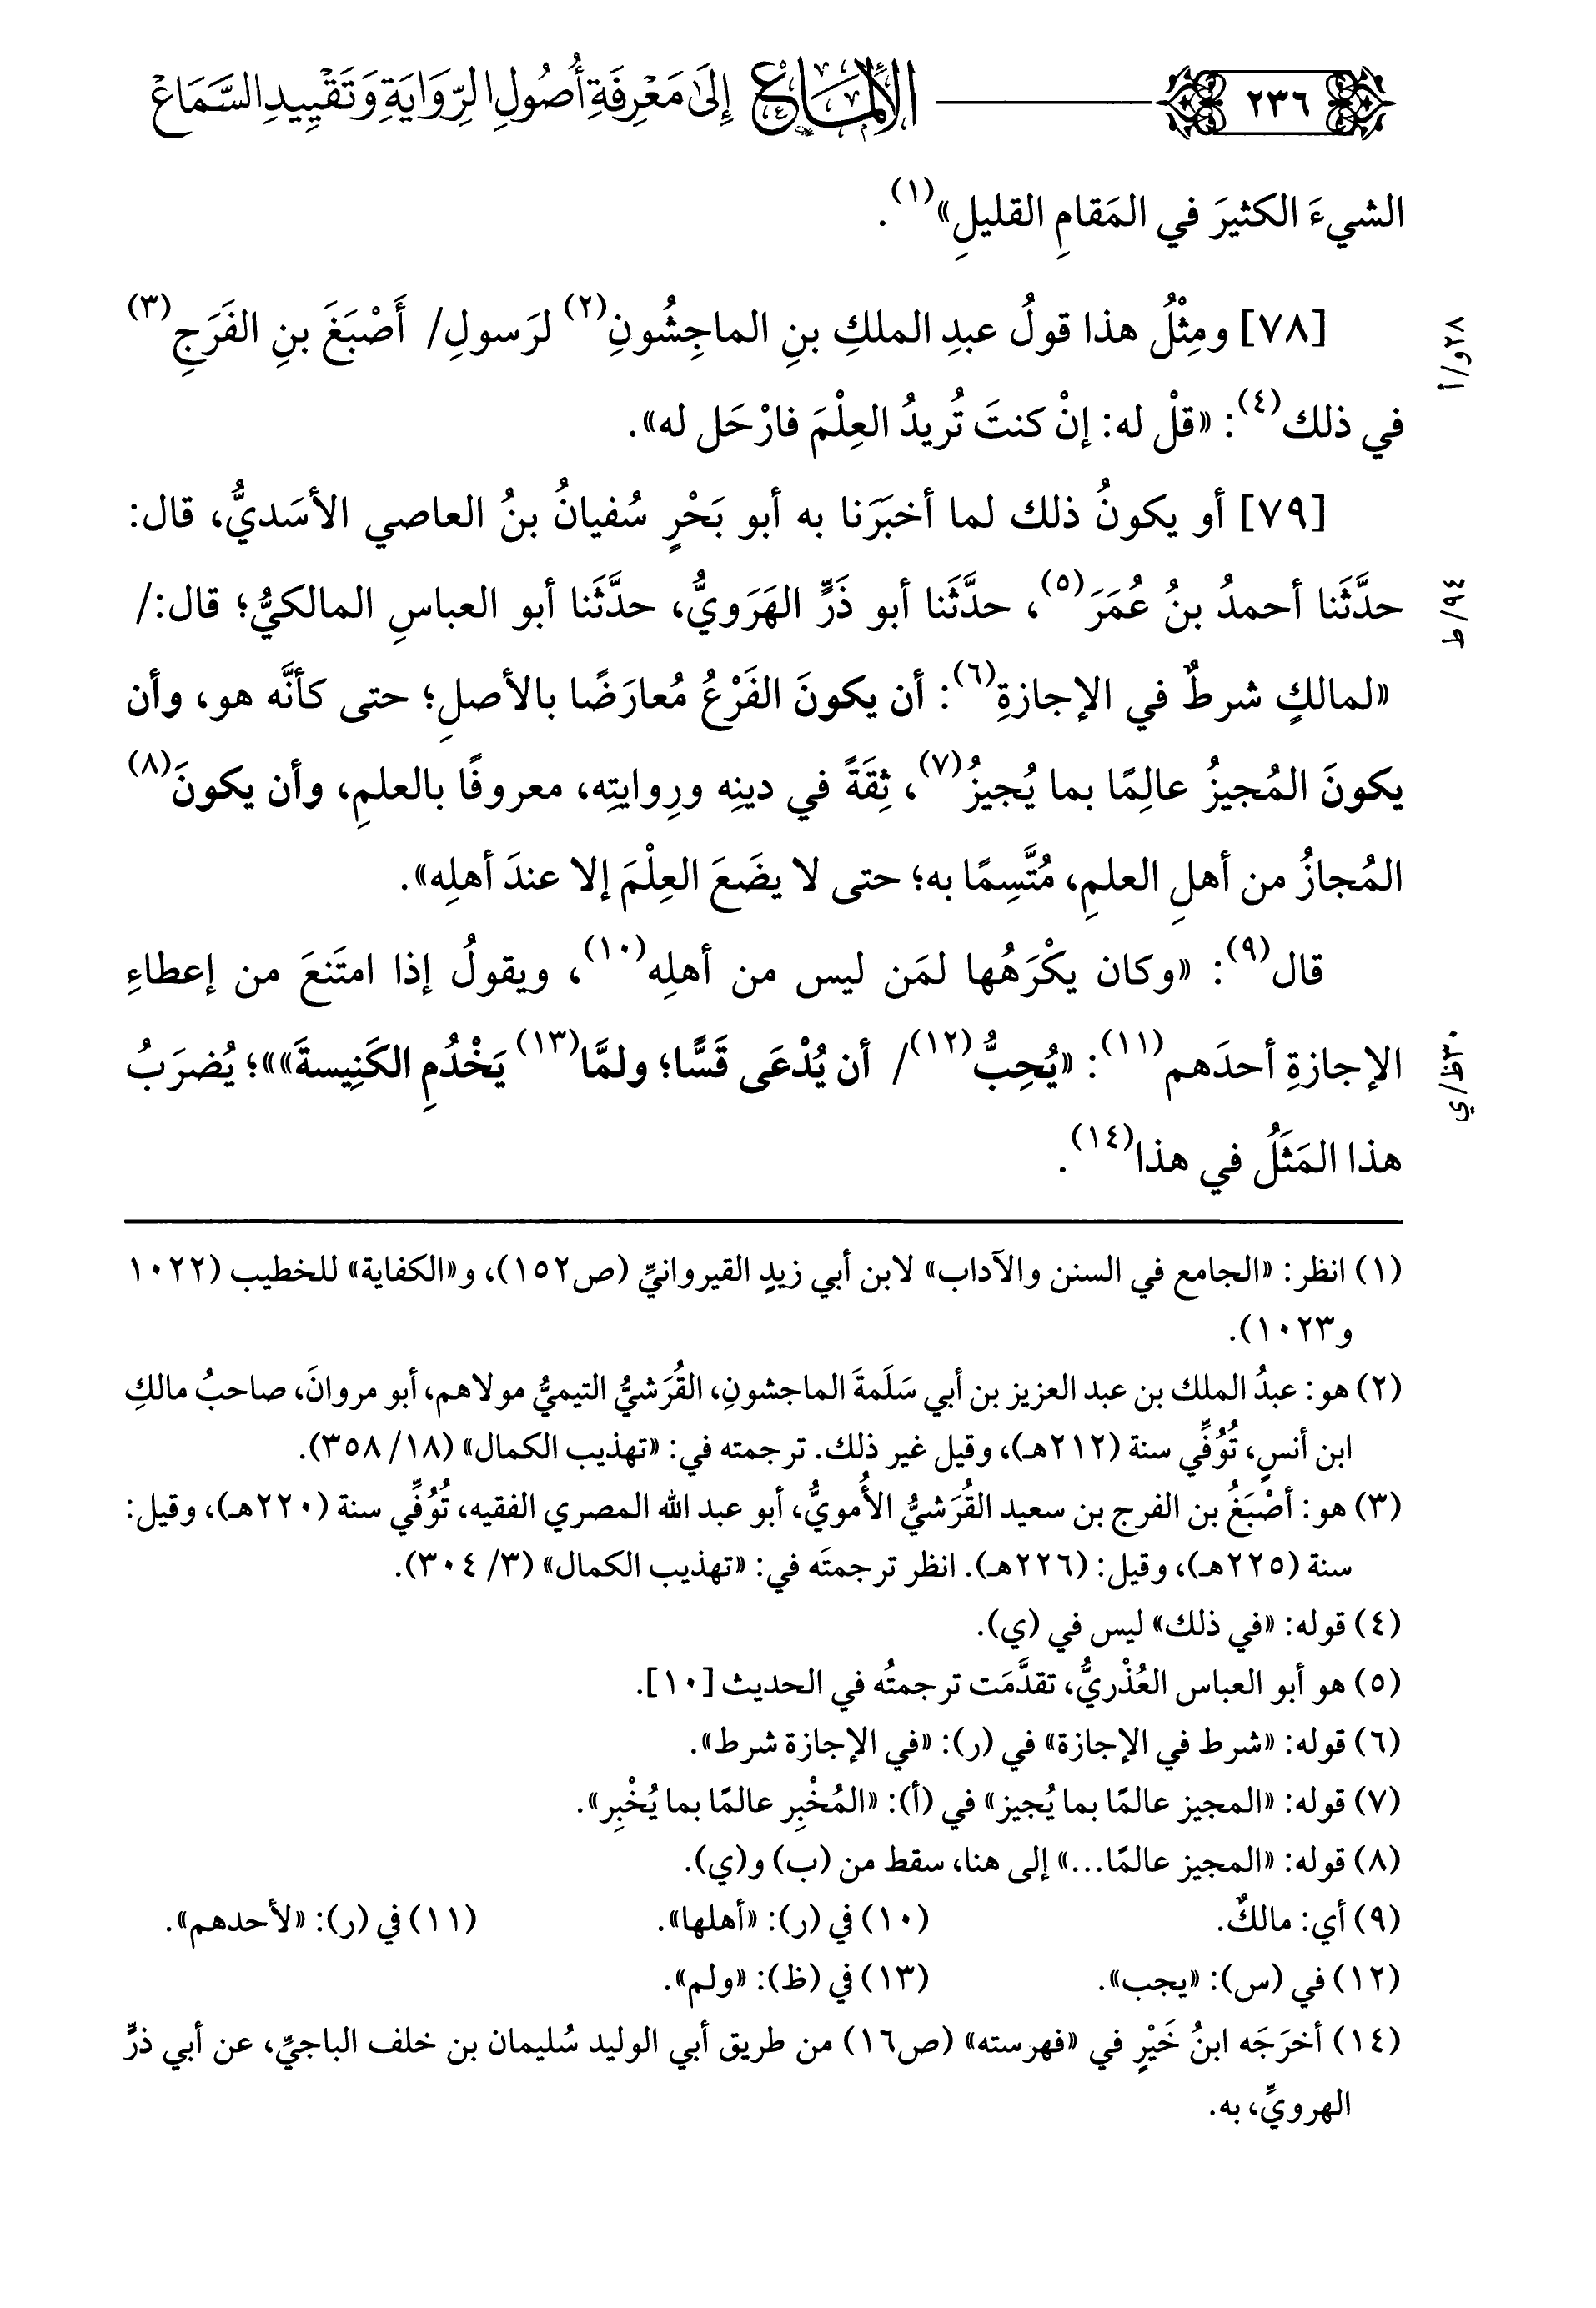 ٢٣٦ الإلماع إِلَى مَعْرِفَةِ أُصُولِ الرِّوَايَةِ وَتَقْيِيدِ السَّمَاعْ
الشيءَ الكثيرَ في المَقامِ القليلِ»(١).
[٧٨] ومِثْلُ هذا قولُ عبدِ الملكِ بنِ الماجِشُونِ(٢) لرَسولِ/ أَصْبَغَ بنِ الفَرَجِ(٣)
٢٨و/أ
في ذلك(٤): «قلْ له: إنْ كنتَ تُريدُ العِلْمَ فارْحَل له».
[٧٩] أو يكونُ ذلك لما أخبَرَنا به أبو بَحْرٍ سُفيانُ بنُ العاصي الأسَديُّ، قال:
حدَّثَنا أحمدُ بنُ عُمَرَ(٥)، حدَّثَنا أبو ذَرٍّ الهَرَويُّ، حدَّثَنا أبو العباسِ المالكيُّ؛ قال:/
٩٤/ط
«لمالكٍ شرطٌ في الإجازةِ(٦): أن يكونَ الفَرْعُ مُعارَضًا بالأصلِ؛ حتى كأنَّه هو، وأن
يكونَ المُجيزُ عالِمًا بما يُجيزُ(٧)، ثِقَةً في دينِه ورِوايتِه، معروفًا بالعلمِ، وأن يكونَ(٨)
المُجازُ من أهلِ العلمِ، مُتَّسِمًا به؛ حتى لا يضَعَ العِلْمَ إلا عندَ أهلِه».
قال(٩): «وكان يكْرَهُها لمَن ليس من أهلِه(١٠)، ويقولُ إذا امتَنعَ من إعطاءِ
الإجازةِ أحدَهم(١١): «يُحِبُّ(١٢)/ أن يُدْعَى قَسًّا؛ ولمَّا(١٣) يَخْدُمِ الكَنِيسةَ»»؛ يُضرَبُ
٣٠ظ/ي
هذا المَثَلُ في هذا(١٤).
(١) انظر: «الجامع في السنن والآداب» لابن أبي زيدٍ القيروانيِّ (ص١٥٢)، و«الكفاية» للخطيب (١٠٢٢
و١٠٢٣).
(٢) هو: عبدُ الملك بن عبد العزيز بن أبي سَلَمةَ الماجشونِ، القُرَشيُّ التيميُّ مولاهم، أبو مروانَ، صاحبُ مالكِ
ابن أنسٍ، تُوُفِّي سنة (٢١٢هـ)، وقيل غير ذلك. ترجمته في: «تهذيب الكمال» (١٨/ ٣٥٨).
(٣) هو: أصْبَغُ بن الفرج بن سعيد القُرَشيُّ الأُمويُّ، أبو عبد الله المصري الفقيه، تُوُفِّي سنة (٢٢٠هـ)، وقيل:
سنة (٢٢٥هـ)، وقيل: (٢٢٦هـ). انظر ترجمتَه في: «تهذيب الكمال» (٣/ ٣٠٤).
(٤) قوله: «في ذلك» ليس في (ي).
(٥) هو أبو العباس العُذْريُّ، تقدَّمَت ترجمتُه في الحديث [١٠].
(٦) قوله: «شرط في الإجازة» في (ر): «في الإجازة شرط».
(٧) قوله: «المجيز عالمًا بما يُجيز» في (أ): «المُخْبِر عالمًا بما يُخْبِر».
(٨) قوله: «المجيز عالمًا...» إلى هنا، سقط من (ب) و(ي).
(٩) أي: مالكٌ. (١٠) في (ر): «أهلها». (١١) في (ر): «لأحدهم».
(١٢) في (س): «يجب». (١٣) في (ظ): «ولم».
(١٤) أخرَجَه ابنُ خَيْرٍ في «فهرسته» (ص١٦) من طريق أبي الوليد سُليمان بن خلف الباجيِّ، عن أبي ذرٍّ
الهرويِّ، به.